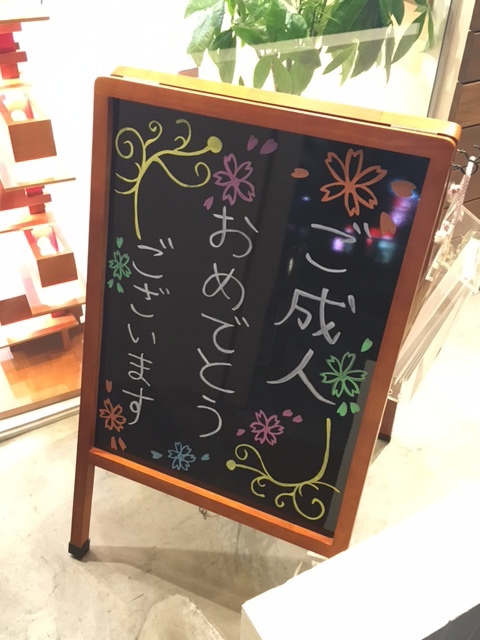 ご成人
おめでとう
ございます